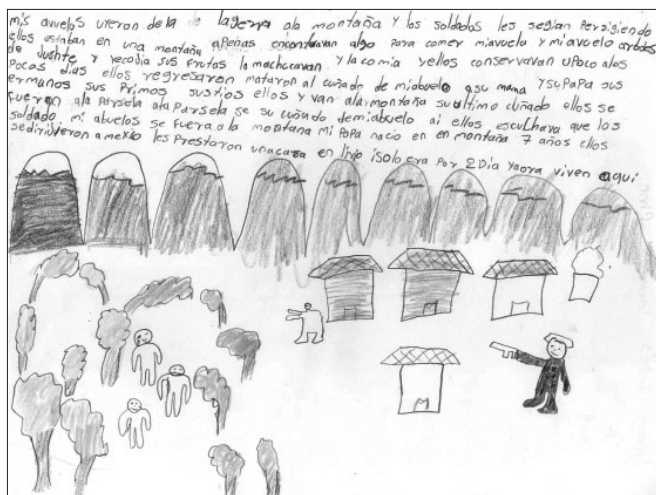 mis avuelos uyeron dela de lagerra ala montaña y los soldados les segian Persigiendo
ellos estaban en una montaña apenas encontravan algo para comer miavuela y miavuelo arboles
de Jushte y recodia sus frutas la machucavan y la comia yellos conservavan upoco alos
Pocos dias ellos regresaron mataron al cuñado de miabuelo asu mama ysupapa sus
ermanos sus Primos sustios ellos y van alamontaña suultimo cuñado ellos se
fueron ala Parsela ala Parsela se su cuñado demiabuelo ai ellos esculhava que los
soldado mi abuelos se fuera ala montana mi Papa nacio en en montaña 7 años ellos
sedirivieron amexico les Prestaron unacasa en isolo era por 2 Dia yaora viven aqui